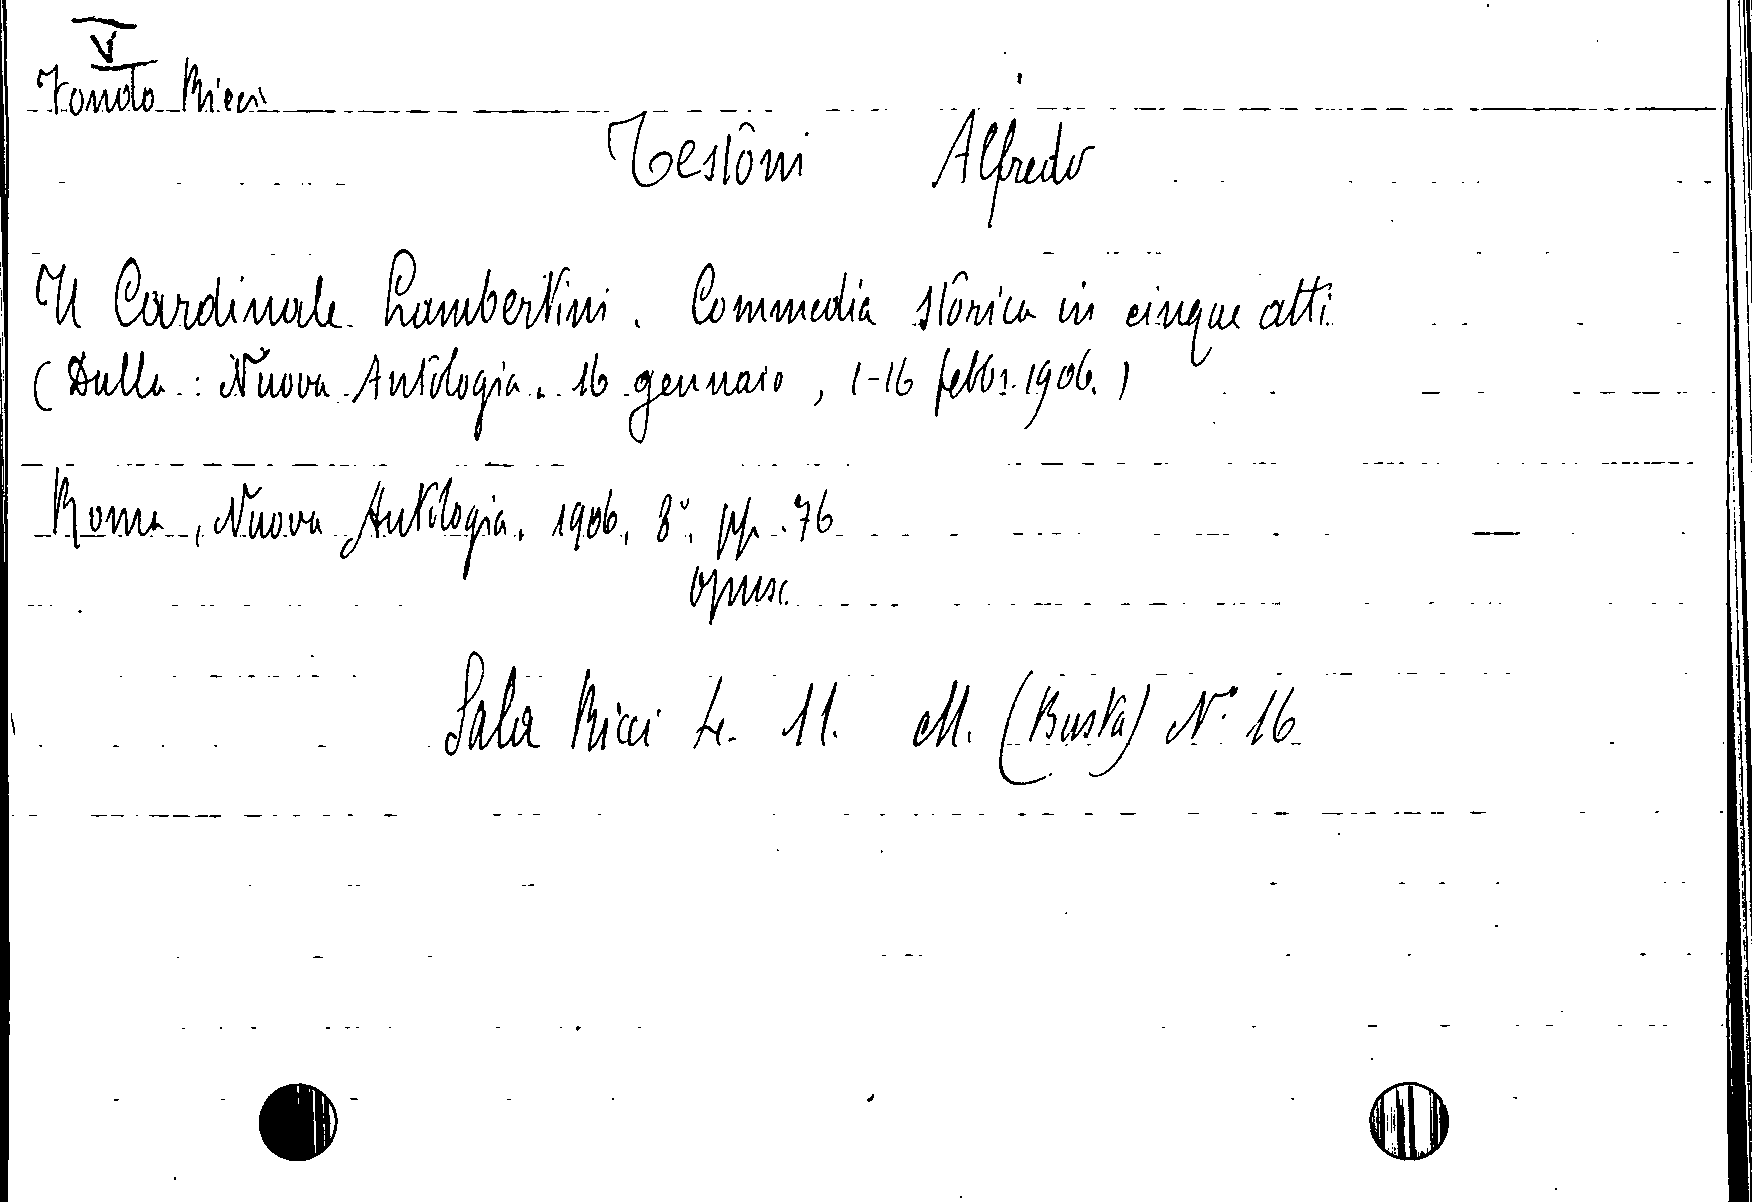 V
Fondo Ricci
Testoni Alfredo
Il Cardinale Lambertini. Commedia storica in cinque atti
(Dalla: Nuova Antologia. 16 gennaio, 1-16 febbr. 1906.)
Roma, Nuova Antologia. 1906. 8°. pp. 76
opusc.
Sala Ricci L. 11. M. (Busta) N° 16